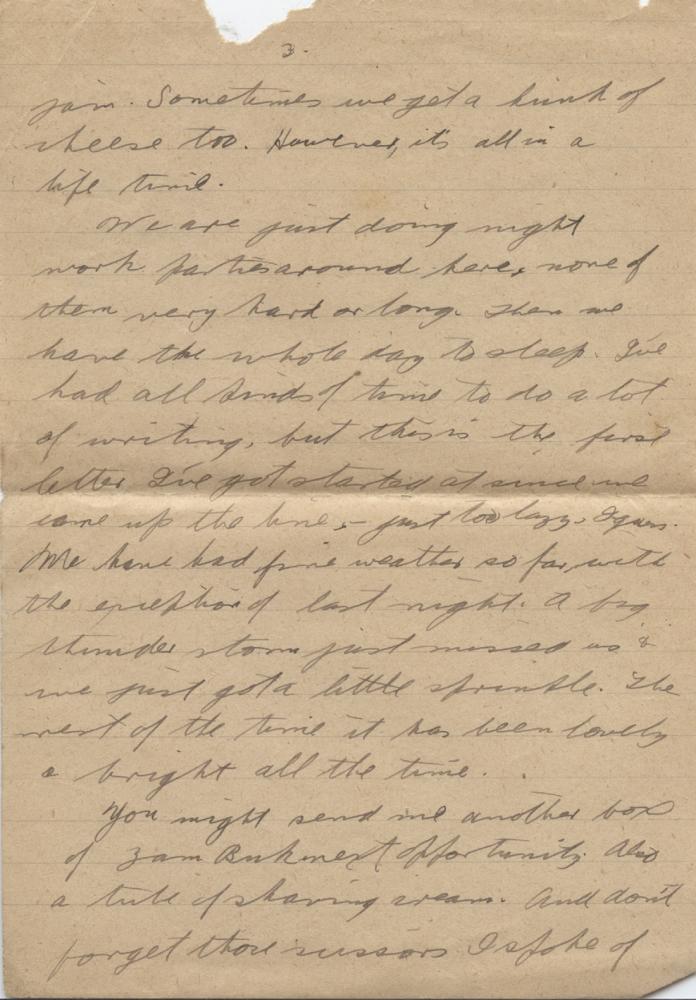 3.
jam. Sometimes we get a hunk of
cheese too. However, it's all in a
life time.
We are just doing night
work parties around here, none of
them very hard or long. Then we
have the whole day to sleep. I've
had all kinds of time to do a lot
of writing, but this is the first
letter I've got started at since we
came up the line, - just too lazy, I guess.
We have had fine weather so far, with
the exception of last night. A big
thunder storm just missed us &
we just got a little sprinkle. The
rest of the time it has been lovely
& bright all the time.
You might send me another box
of Zam Buk next opportunity. Also
a tube of shaving cream. And don't
forget those scissors I spoke of